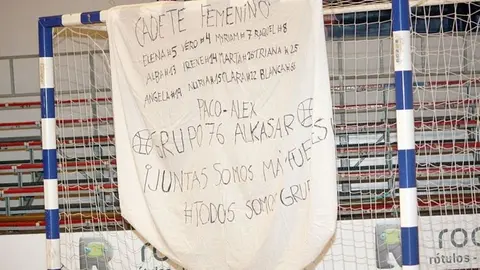 CADETE FEMENINO
ELENA#5 VERO#4 MYRIAM#7 RAQUEL#8
ALBA#13 IRENE#14 MARTA#26 TRIANA#25
ANGELA#19 NURIA#15 CLARA#22 BLANCA
PACO-ALEX
GRUPO 76 ALKASAR
¡JUNTAS SOMOS MÁS FUERTES!
#TODOS SOMOS GRU
roc
rótulos -
roc
rótulos -